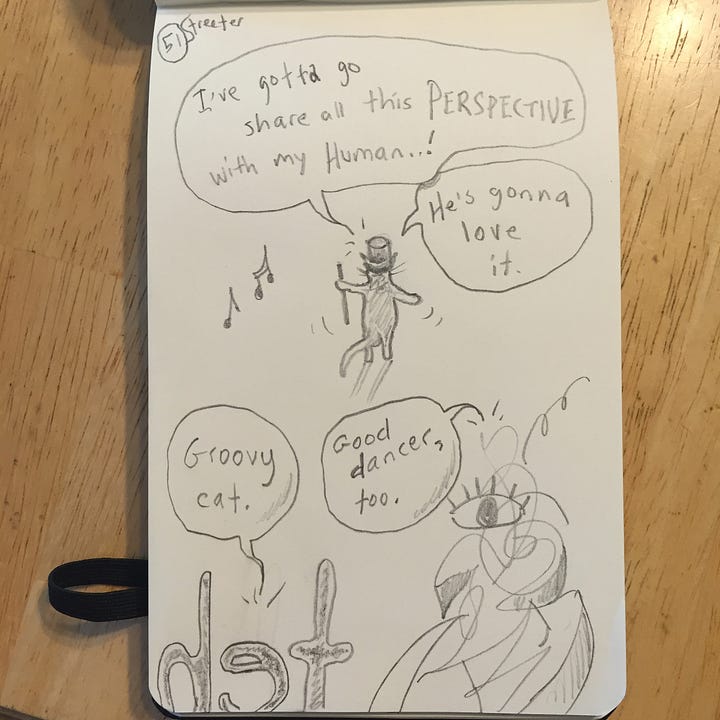 51 Streeter
I've gotta go
share all this PERSPECTIVE
with my Human...!
He's gonna
love
it.
Groovy
cat.
Good
dancer,
too.